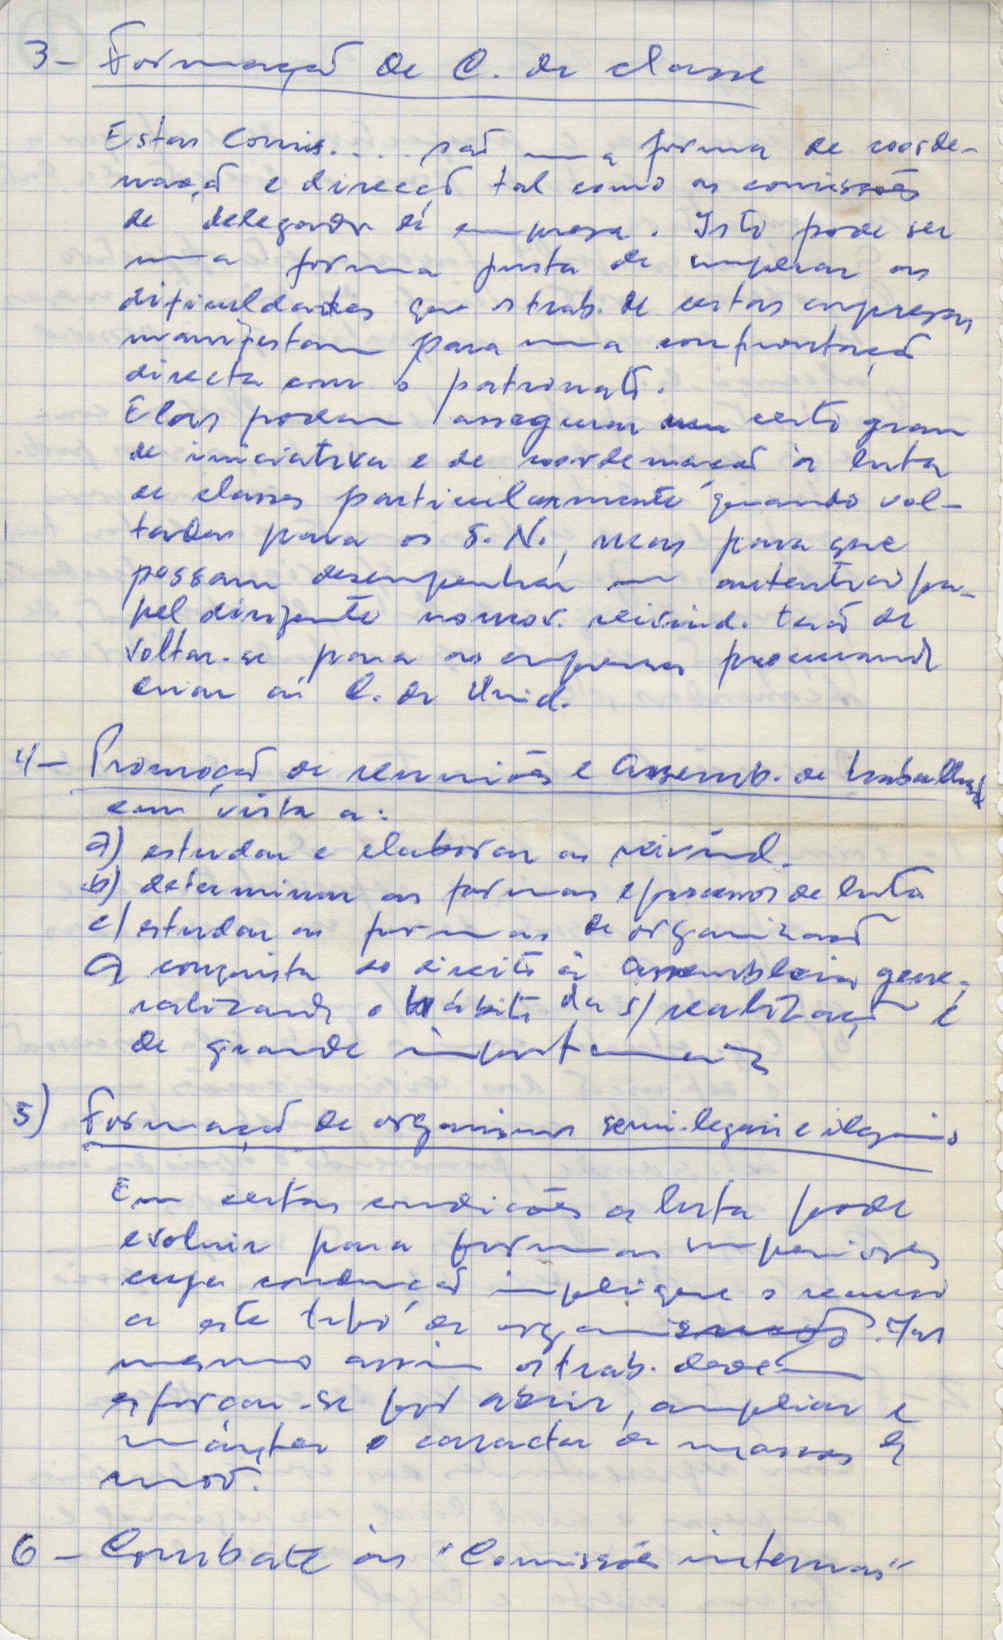 3- Formação de C. de classe
Estas Comis.... são uma forma de coorde-
nação e direcção tal como as comissões
de delegados de empresa. Isto pode ser
uma forma justa de superar as
dificuldades que os trab. de certas empresas
manifestam para uma confrontação
directa com o patronato.
Elas podem assegurar um certo grau
de iniciativa e de coordenação à luta
de classes particularmente quando vol-
tadas para os S.N., mas para que
possam desempenhar um autentico pa-
pel dirigente no mov. reivind. terão de
voltar-se para as empresas procurando
criar aí C. de Unid.
4- Promoção de reuniões e Assemb. de trabalhad.
em vista a:
a) estudar e elaborar as reivind.
b) determinar as formas e/processos de luta
c) estudar as formas de organização
A conquista do direito à Assembleia, gene-
ralizando o hábito da s/ realização é
de grande importancia
5) Formação de organismos semi-legais e ilegais
Em certas condições a luta pode
evoluir para formas superiores
cuja condução implique o recurso
a este tipo de organismos. Mas
mesmo assim os trab. devem
esforçar-se por abrir, ampliar e
manter o caracter de massas do
mov.
6- Combate às "Comissões internas"